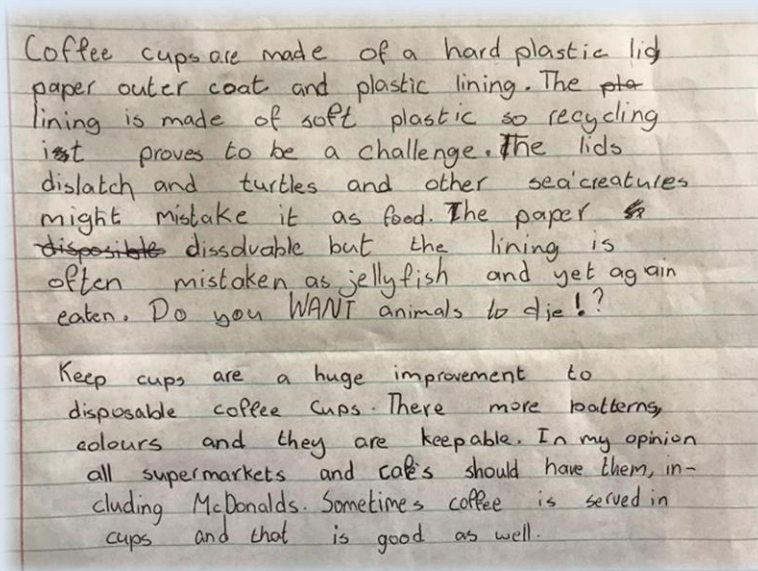 Coffee cups are made of a hard plastic lid
paper outer coat and plastic lining. The pla
lining is made of soft plastic so recycling
ist proves to be a challenge. The lids
dislatch and turtles and other sea creatures
might mistake it as food. The paper
disposible dissolvable but the lining is
often mistaken as jellyfish and yet again
eaten. Do you WANT animals to die!?
Keep cups are a huge improvement to
disposable coffee cups. There more patterns,
colours and they are keepable. In my opinion
all supermarkets and cafes should have them, in-
cluding McDonalds. Sometimes coffee is served in
cups and that is good as well.